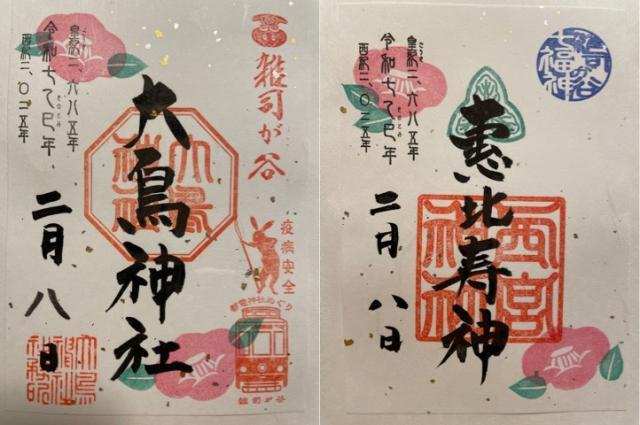 雑司が谷
疫病安全
都電神社めぐり
雑司が谷
大鳥神社
大鳥神社
皇紀二、六八五年
令和七乙巳年
きのとみ
西紀二、〇二五年
二月八日
七福神
恵比寿神
西宮神社
皇紀二、六八五年
こうき
令和七乙巳年
きのとみ
西紀二、〇二五年
二月八日